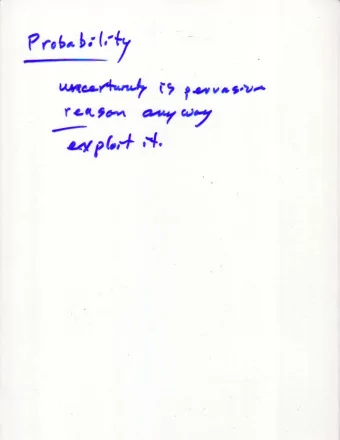 Probability
uncertainty is pervasive
reason anyway
exploit it.